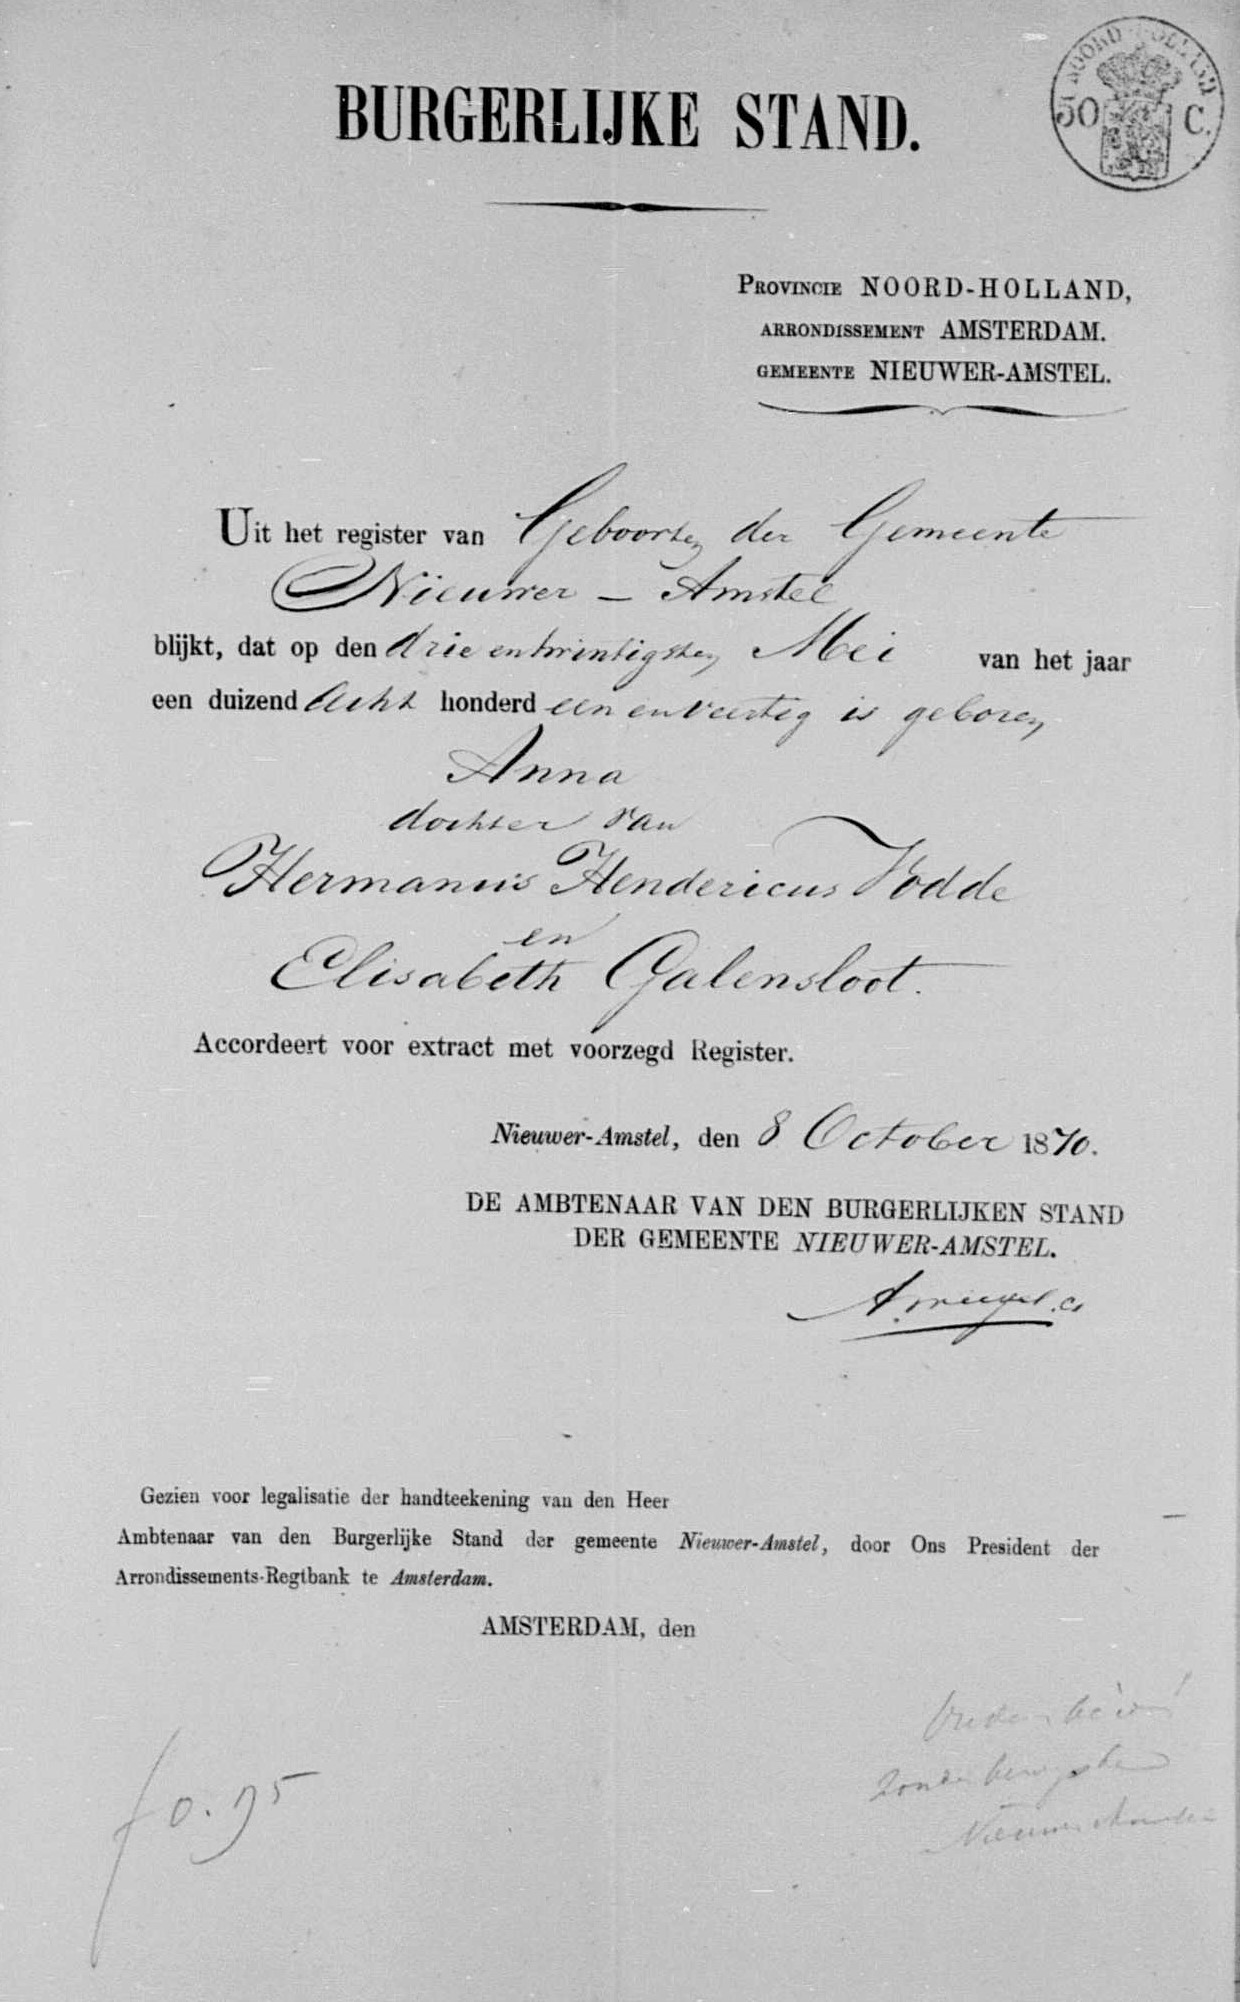 NOORD-HOLLAND
50 C.
BURGERLIJKE STAND.
PROVINCIE NOORD-HOLLAND,
ARRONDISSEMENT AMSTERDAM.
GEMEENTE NIEUWER-AMSTEL.
Uit het register van Geboorten der Gemeente
Nieuwer - Amstel
blijkt, dat op den drie entwintigsten Mei van het jaar
een duizend acht honderd een en veertig is geboren
Anna
dochter van
Hermanus Hendericus Vodde
en
Elisabeth Galensloot.
Accordeert voor extract met voorzegd Register.
Nieuwer-Amstel, den 8 October 1870.
DE AMBTENAAR VAN DEN BURGERLIJKEN STAND
DER GEMEENTE NIEUWER-AMSTEL.
Gezien voor legalisatie der handteekening van den Heer
Ambtenaar van den Burgerlijke Stand der gemeente Nieuwer-Amstel, door Ons President der
Arrondissements-Regtbank te Amsterdam.
AMSTERDAM, den
f 0.95
Nieuwer Amstel